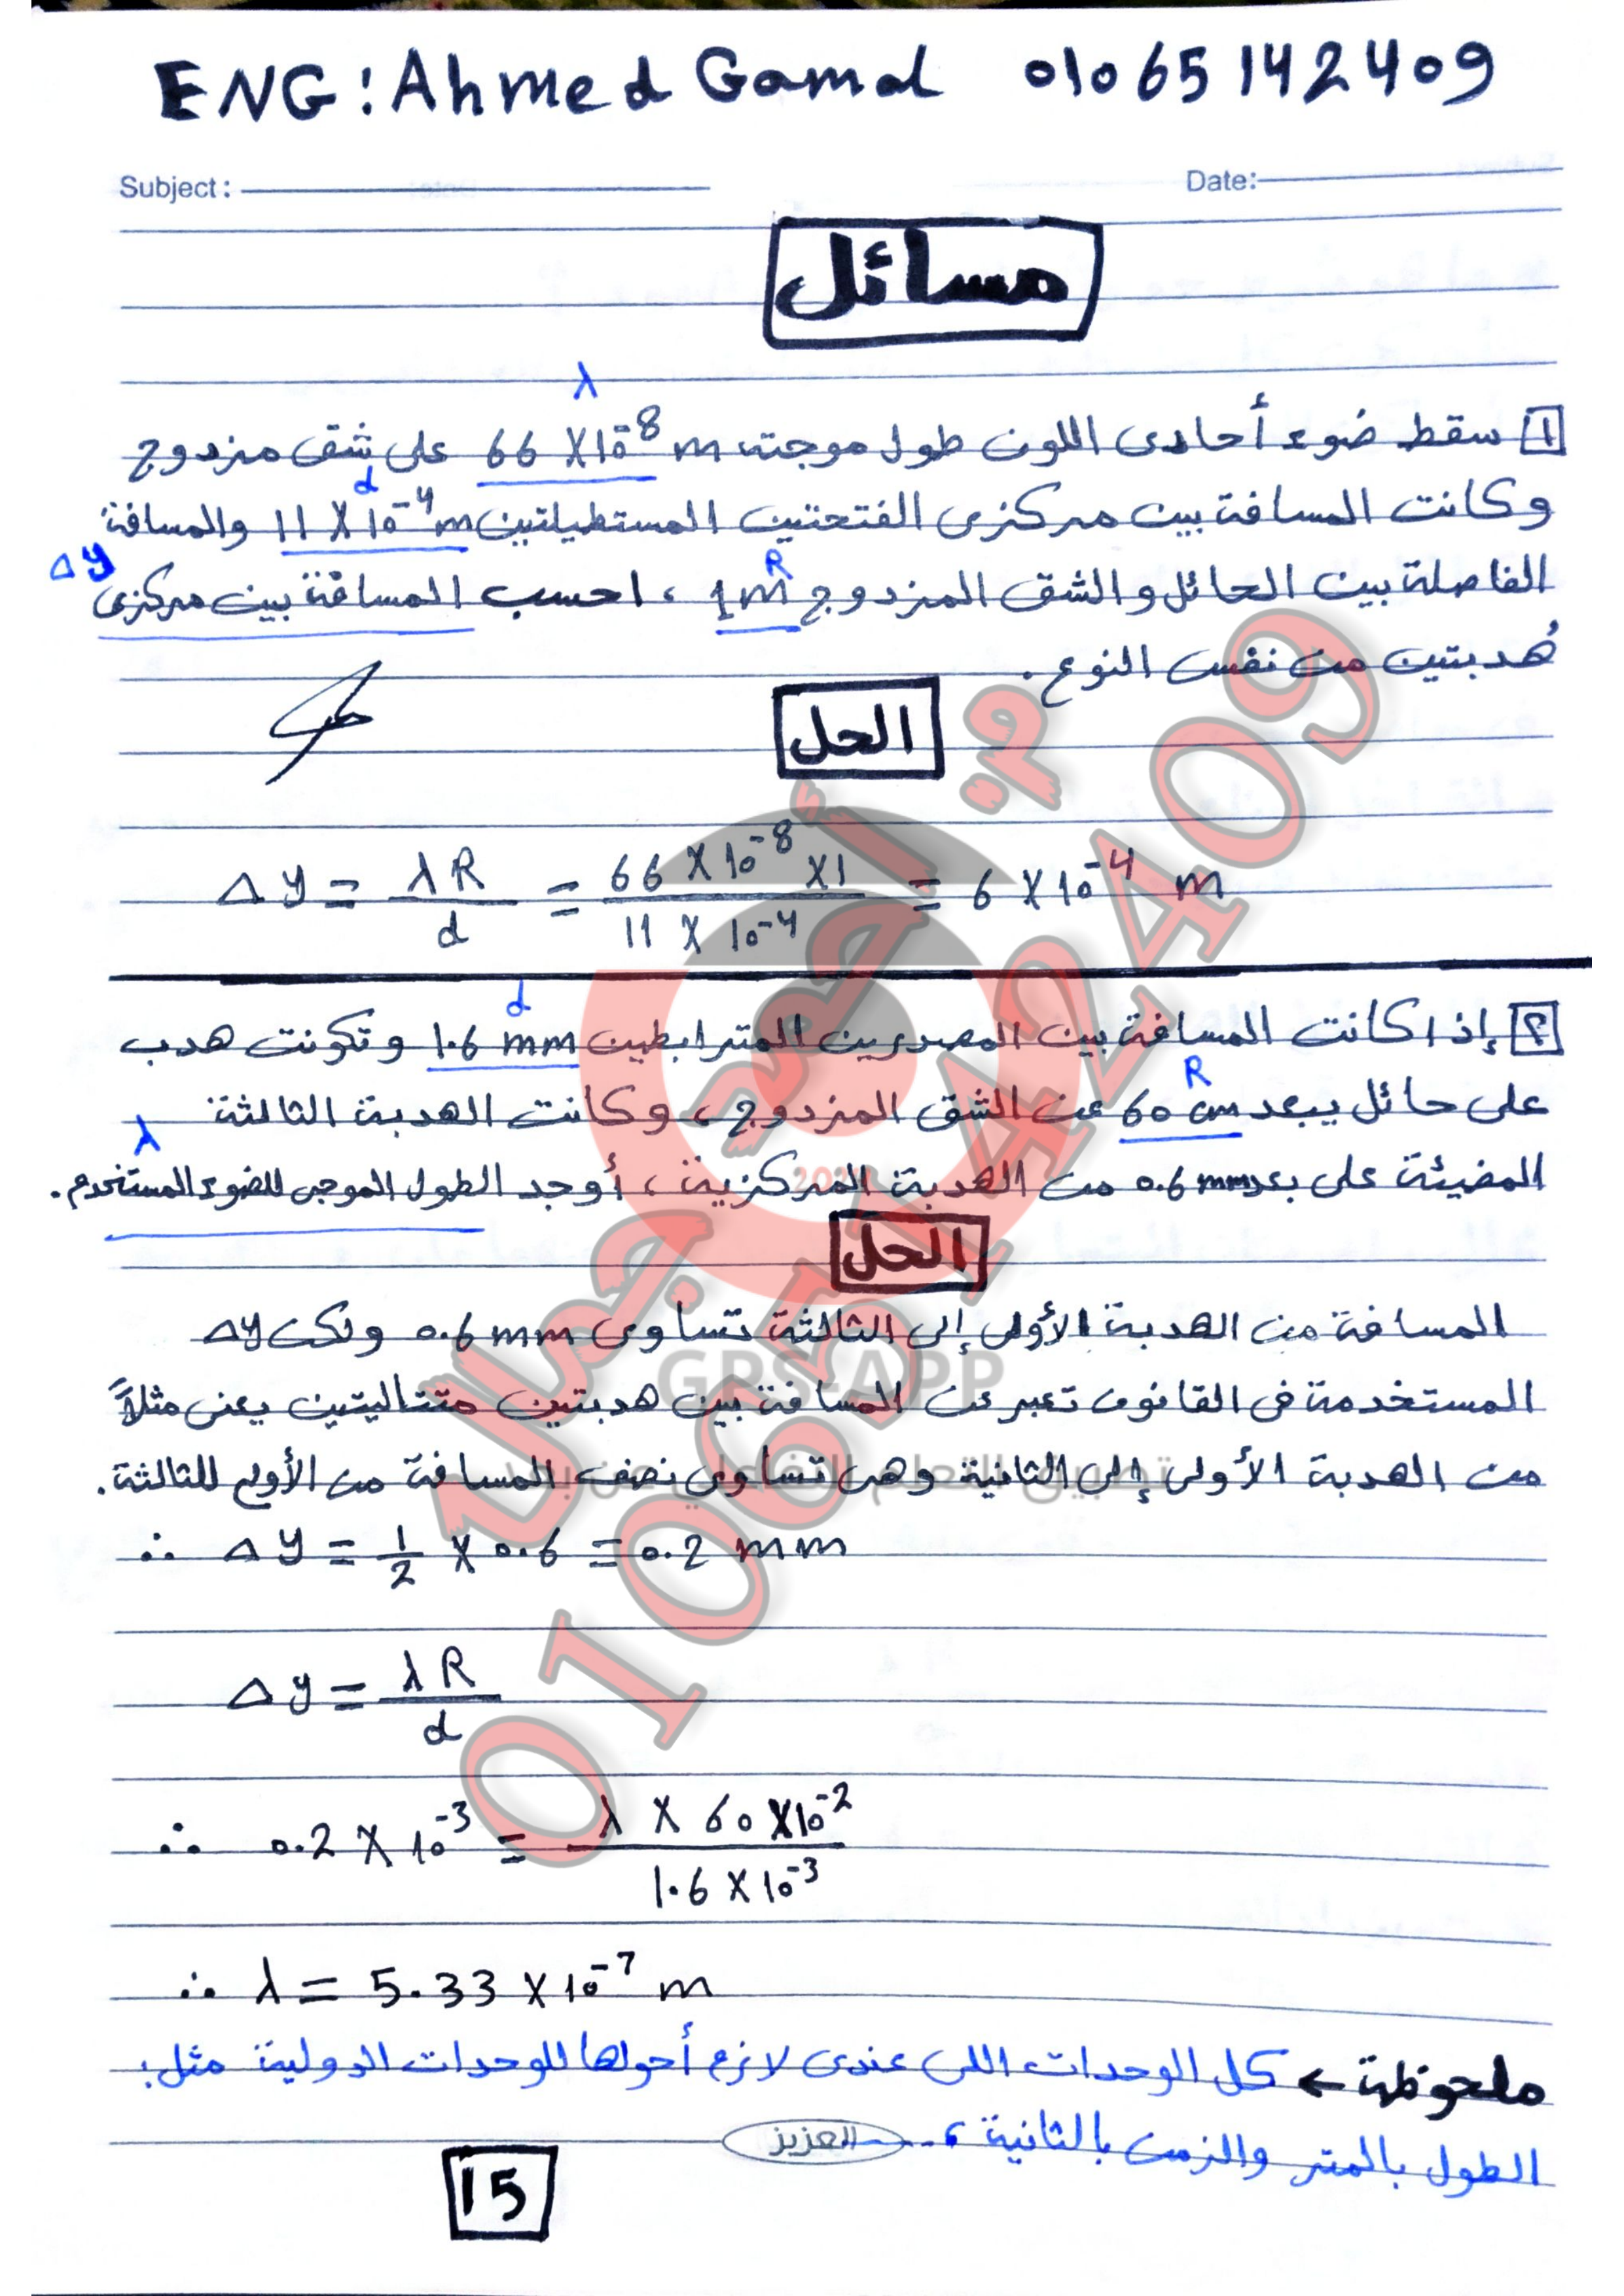 ENG: Ahmed Gamal 01065142409
Subject: Date:
مسائل
λ
1 سقط ضوء أحادى اللون طول موجته 66 X 10⁻⁸ m على شق مزدوج
d
وكانت المسافة بين مركزى الفتحتين المستطيلتين 11 X 10⁻⁴ m والمسافة
Δy R
الفاصلة بين الحائل والشق المزدوج 1m ، احسب المسافة بين مركزى
هُدبتين من نفس النوع.
الحل
Δy = λR / d = 66 X 10⁻⁸ X 1 / 11 X 10⁻⁴ = 6 X 10⁻⁴ m
d
2 إذا كانت المسافة بين المصدرين المترابطين 1.6 mm وتكونت هدب
R
على حائل يبعد 60 cm عن الشق المزدوج، وكانت الهدبة الثالثة
λ
المضيئة على بعد 0.6 mm من الهدبة المركزية، أوجد الطول الموجى للضوء المستخدم.
الحل
المسافة من الهدبة الأولى إلى الثالثة تساوى 0.6 mm ولكن Δy
المستخدمة فى القانون تعبر عن المسافة بين هدبتين متتاليتين يعنى مثلاً
من الهدبة الأولى إلى الثانية وهى تساوى نصف المسافة من الأولى للثالثة.
∴ Δy = 1/2 X 0.6 = 0.2 mm
Δy = λR / d
∴ 0.2 X 10⁻³ = λ X 60 X 10⁻² / 1.6 X 10⁻³
∴ λ = 5.33 X 10⁻⁷ m
ملحوظة ← كل الوحدات اللى عندى لازم أحولها للوحدات الدولية مثل:
الطول بالمتر والزمن بالثانية ،...
العزيز
15
م. أحمد جمال
01065142409
GPS-APP